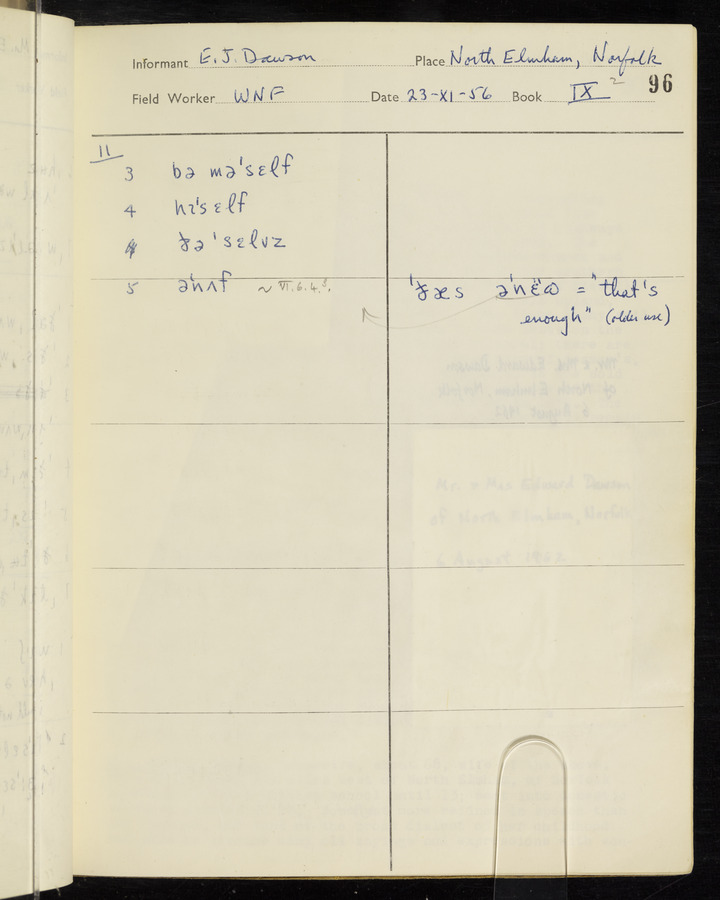 Informant E. J. Dawson Place North Elmham, Norfolk
Field Worker WNF Date 23-XI-56 Book IX 2 96
11
3 bə məˈsɛlf
4 hɪˈsɛlf
ðəˈsɛlvz
5 əˈnʌf ~ VI.6.4. ˈðæs əˈnɛ̈ɷ = "that's
enough" (older use)